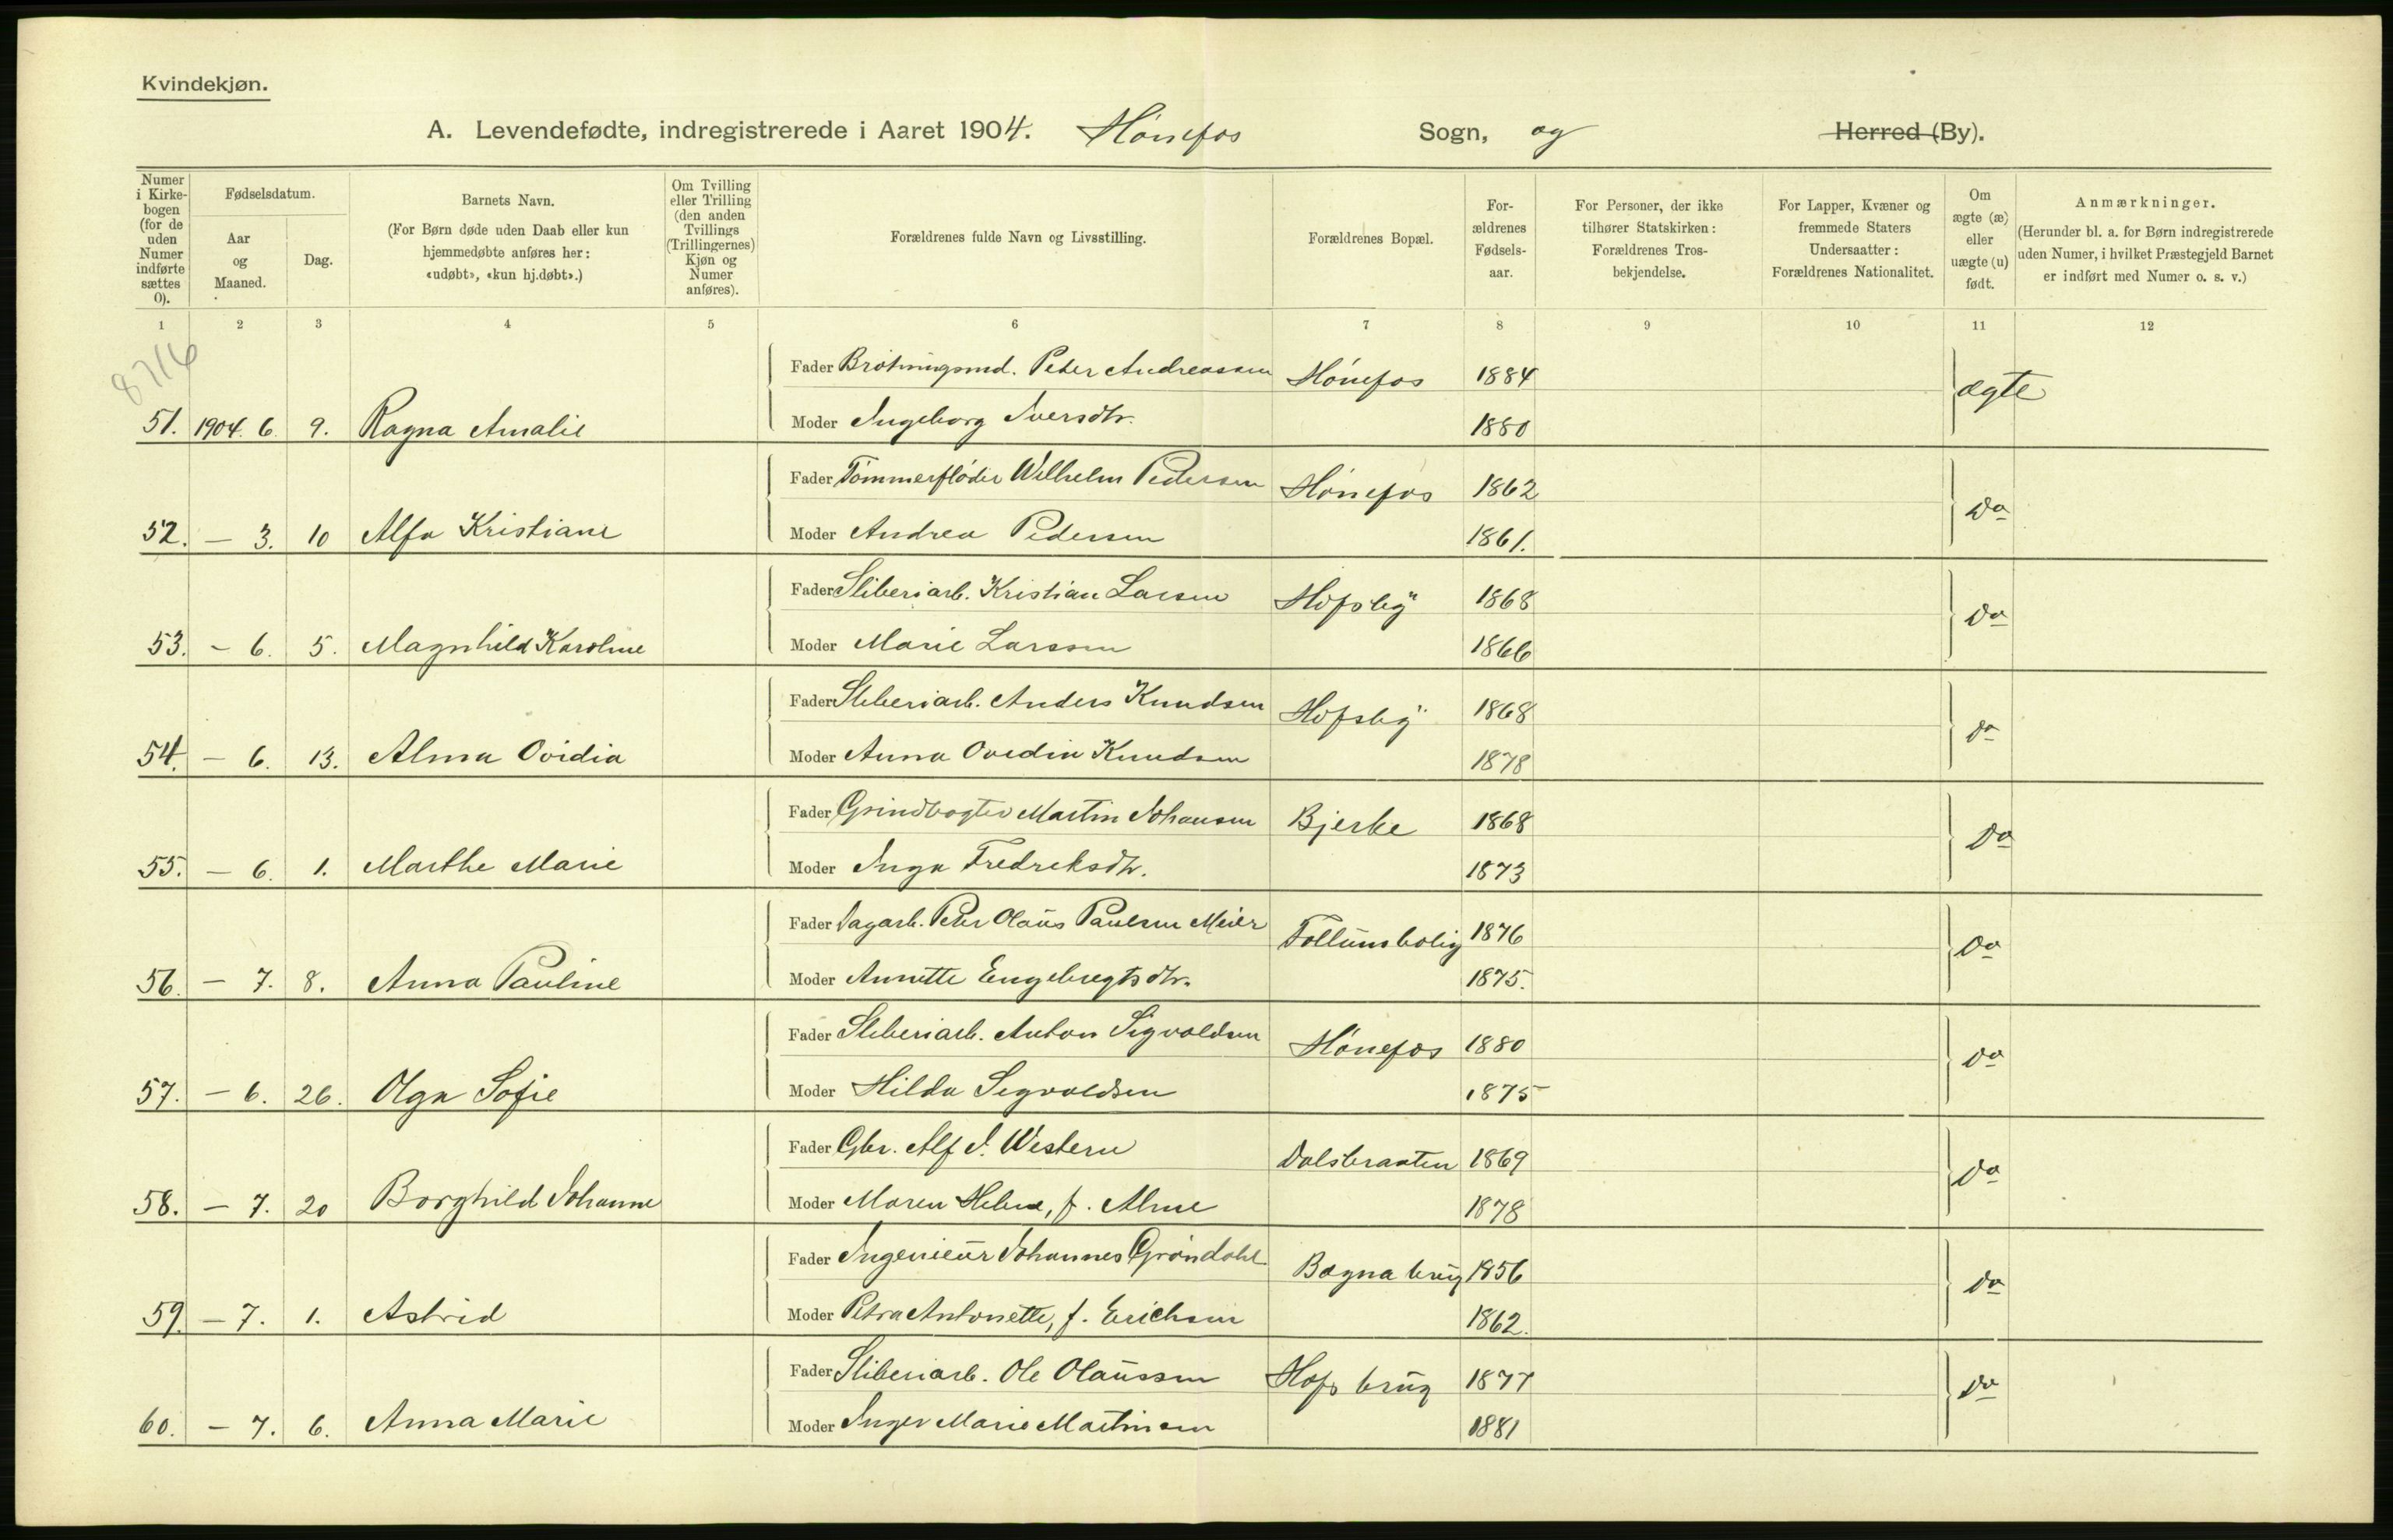 Kvindekjøn.
A. Levendefødte, indregistrerede i Aaret 1904. Hönefos Sogn, og Herred (By).
Numer i Kirkebogen (for de uden Numer indførte sættes 0).
Fødselsdatum.
Aar og Maaned.
Dag.
Barnets Navn.
(For Børn døde uden Daab eller kun hjemmedøbte anføres her: «udøbt», «kun hj.døbt».)
Om Tvilling eller Trilling (den anden Tvillings (Trillingernes) Kjøn og Numer anføres).
Forældrenes fulde Navn og Livsstilling.
Forældrenes Bopæl.
Forældrenes Fødselsaar.
For Personer, der ikke tilhører Statskirken: Forældrenes Trosbekjendelse.
For Lapper, Kvæner og fremmede Staters Undersaatter: Forældrenes Nationalitet.
Om ægte (æ) eller uægte (u) født.
Anmærkninger.
(Herunder bl. a. for Børn indregistrerede uden Numer, i hvilket Præstegjeld Barnet er indført med Numer o. s. v.)
1 2 3 4 5 6 7 8 9 10 11 12
8716
Fader Peter Andreassen Hönefos 1884 ægte
51. 1904. 6. 9. Ragna Amalie Moder Ingeborg Iversdtr. 1880
Fader Tömmerflöder Wilhelm Pedersen Hönefos 1862 Do
52. — 3. 10 Alfa Kristiane Moder Andrea Pedersen 1861.
Fader Sliberiarb. Kristian Larsen Hofsby 1868 Do
53. - 6. 5. Magnhild Karoline Moder Marie Larssen 1866
Fader Sliberiarb. Anders Knudsen Hofsby 1868 Do
54. - 6. 13. Alma Ovidia Moder Anna Ovedia Knudsen 1878
Fader Grindvogter Martin Johansen Bjerke 1868 Do
55. — 6. 1. Marthe Marie Moder Inga Fredreksdtr. 1873
Fader Dagarb. Peter Olaus Paulsen Meier Follumsbolig 1876 Do
56. — 7. 8. Anna Pauline Moder Annette Engebregtsdtr. 1875.
Fader Sliberiarb. Anton Sigvoldsen Hönefos 1880 Do
57. — 6. 26. Olga Sofie Moder Hilda Segvoldsen 1875
Fader Gbr. Alf J. Western Dalsbraaten 1869 Do
58. — 7. 20 Borghild Johanne Moder Maren Helene, f. Alme 1878
Fader Ingenieur Johannes Gröndahl Bægna brug 1856 Do
59. — 7. 1. Astrid Moder Petra Antonette, f. Erichsen 1862.
Fader Sliberiarb. Ole Olaussen Hofs brug 1877 Do
60. — 7. 6. Anna Marie Moder Inger Marie Martinsen 1881